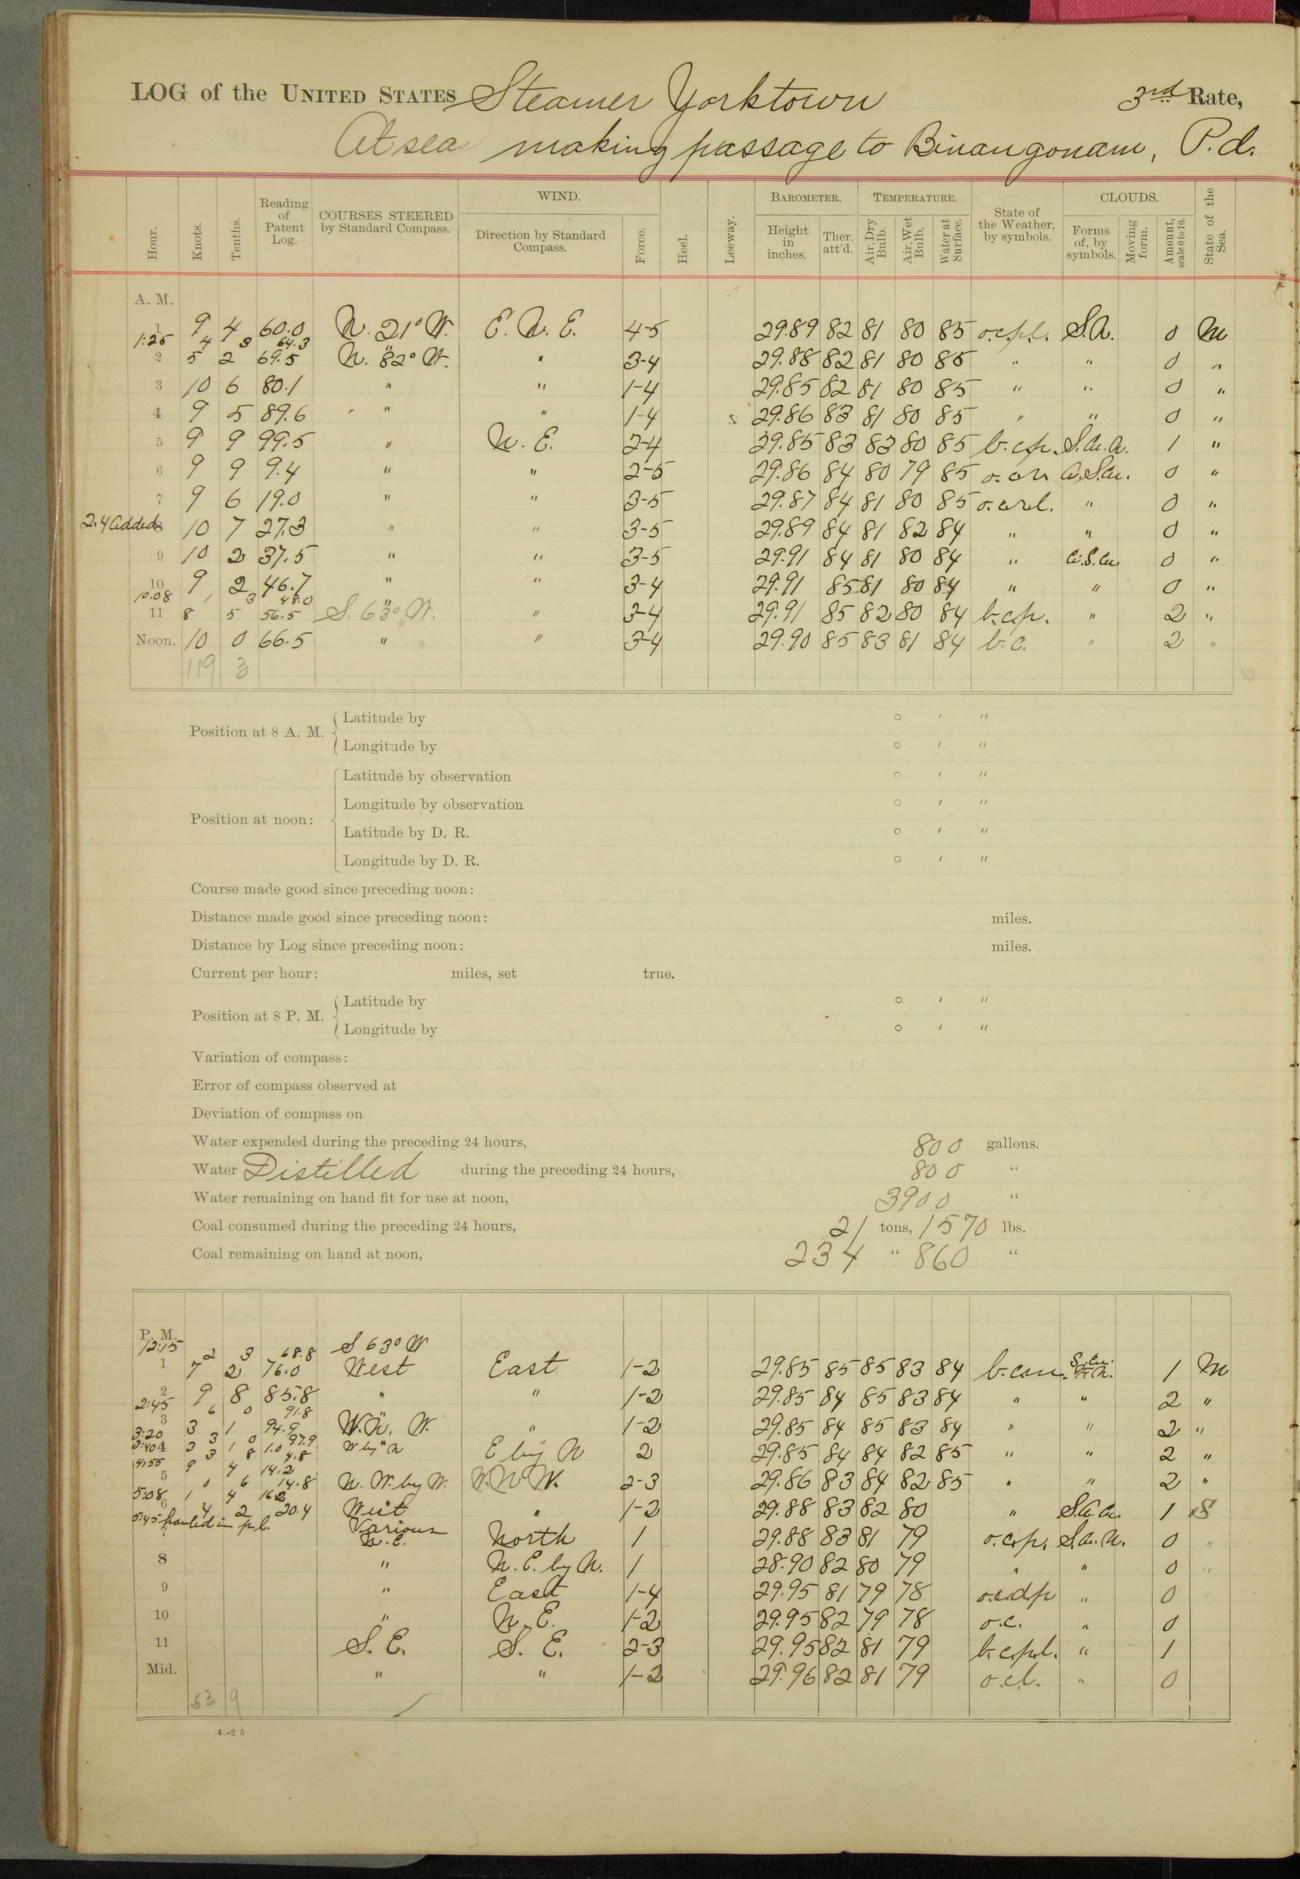 LOG of the UNITED STATES Steamer Yorktown 3rd Rate,
At sea making passage to Binangonam, P.d.
Hour. Knots. Tenths. Reading of Patent Log. COURSES STEERED by Standard Compass. WIND. Direction by Standard Compass. Force. Heel. Leeway. BAROMETER. Height in inches. Ther. att'd. TEMPERATURE. Air, Dry Bulb. Air, Wet Bulb. Water at Surface. State of the Weather, by symbols. CLOUDS. Forms of, by symbols. Moving form. Amount, scale 0 to 10. State of the Sea.
A. M.
1 9 4 60.0 N. 21° W. E. N. E. 4-5 29.89 82 81 80 85 o.c.p.l. S.N. 0 M
1:25 4 3 64.3
2 5 2 69.5 N. 82° W. " 3-4 29.88 82 81 80 85 " " 0 "
3 10 6 80.1 " " 1-4 29.85 82 81 80 85 " " 0 "
4 9 5 89.6 " " 1-4 29.86 83 81 80 85 " " 0 "
5 9 9 99.5 " N. E. 2-4 29.85 83 83 80 85 b.c.p. S.cu.n. 1 "
6 9 9 9.4 " " 2-5 29.86 84 80 79 85 0 "
7 9 6 19.0 " " 3-5 29.87 84 81 80 85 " 0 "
2.4 added 8 10 7 27.3 " " 3-5 29.89 84 81 82 84 " " 0 "
9 10 2 37.5 " " 3-5 29.91 84 81 80 84 " 0 "
10 9 2 46.7 " " 3-4 29.91 85 81 80 84 " " 0 "
10.08 1 3 48.0
11 8 5 56.5 S. 63° W. " 3-4 29.91 85 82 80 84 b.c.p. " 2 "
Noon. 10 0 66.5 " " 3-4 29.90 85 83 81 84 b.c. " 2 "
119 3
Position at 8 A. M. Latitude by ° ′ ″
Longitude by ° ′ ″
Position at noon: Latitude by observation ° ′ ″
Longitude by observation ° ′ ″
Latitude by D. R. ° ′ ″
Longitude by D. R. ° ′ ″
Course made good since preceding noon:
Distance made good since preceding noon: miles.
Distance by Log since preceding noon: miles.
Current per hour: miles, set true.
Position at 8 P. M. Latitude by ° ′ ″
Longitude by ° ′ ″
Variation of compass:
Error of compass observed at
Deviation of compass on
Water expended during the preceding 24 hours, 800 gallons.
Water Distilled during the preceding 24 hours, 800 "
Water remaining on hand fit for use at noon, 3900 "
Coal consumed during the preceding 24 hours, 21 tons, 1570 lbs.
Coal remaining on hand at noon, 234 " 860 "
P. M.
12:15 2 3 68.8 S 63° W
1 7 2 76.0 West East 1-2 29.85 85 85 83 84 1 M
2 9 8 85.8 " " 1-2 29.85 84 85 83 84 " " 2 "
2:45 6 0 91.8
3 3 1 94.9 W. N. W. " 1-2 29.85 84 85 83 84 " " 2 "
3:20 3 0 97.9
3:40 4 3 1 1.0 W by N E by N 2 29.85 84 84 82 85 " " 2 "
3 8 4.8
4:55 9 4 14.2
5 0 6 14.8 N. W. by W. W.N.W. 2-3 29.86 83 84 82 85 " " 2 "
5:08 1 4 16.2
6 4 2 20.4 West " 1-2 29.88 83 82 80 " 1 S
5:45 hauled in p.l. Various
N. E. North 1 29.88 83 81 79 o.c.p. S.cu.n. 0 "
8 " N. E. by N. 1 28.90 82 80 79 " " 0 "
9 " East 1-4 29.95 81 79 78 o.c.d.p " 0
10 " N. E. 1-2 29.95 82 79 78 o.c. " 0
11 S. E. S. E. 2-3 29.95 82 81 79 b.c.p.l. " 1
Mid. " " 1-2 29.96 82 81 79 o.c.l. " 0
53 9
4-25